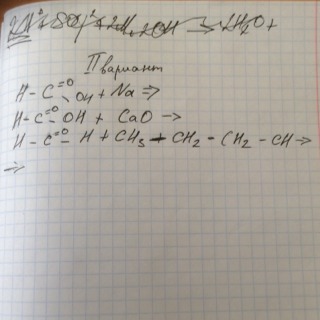 II вариант
H - C =O - OH + Na =>
H - C =O - OH + CaO ->
H - C =O - H + CH3 - CH2 - CH2 - CH =>
=>